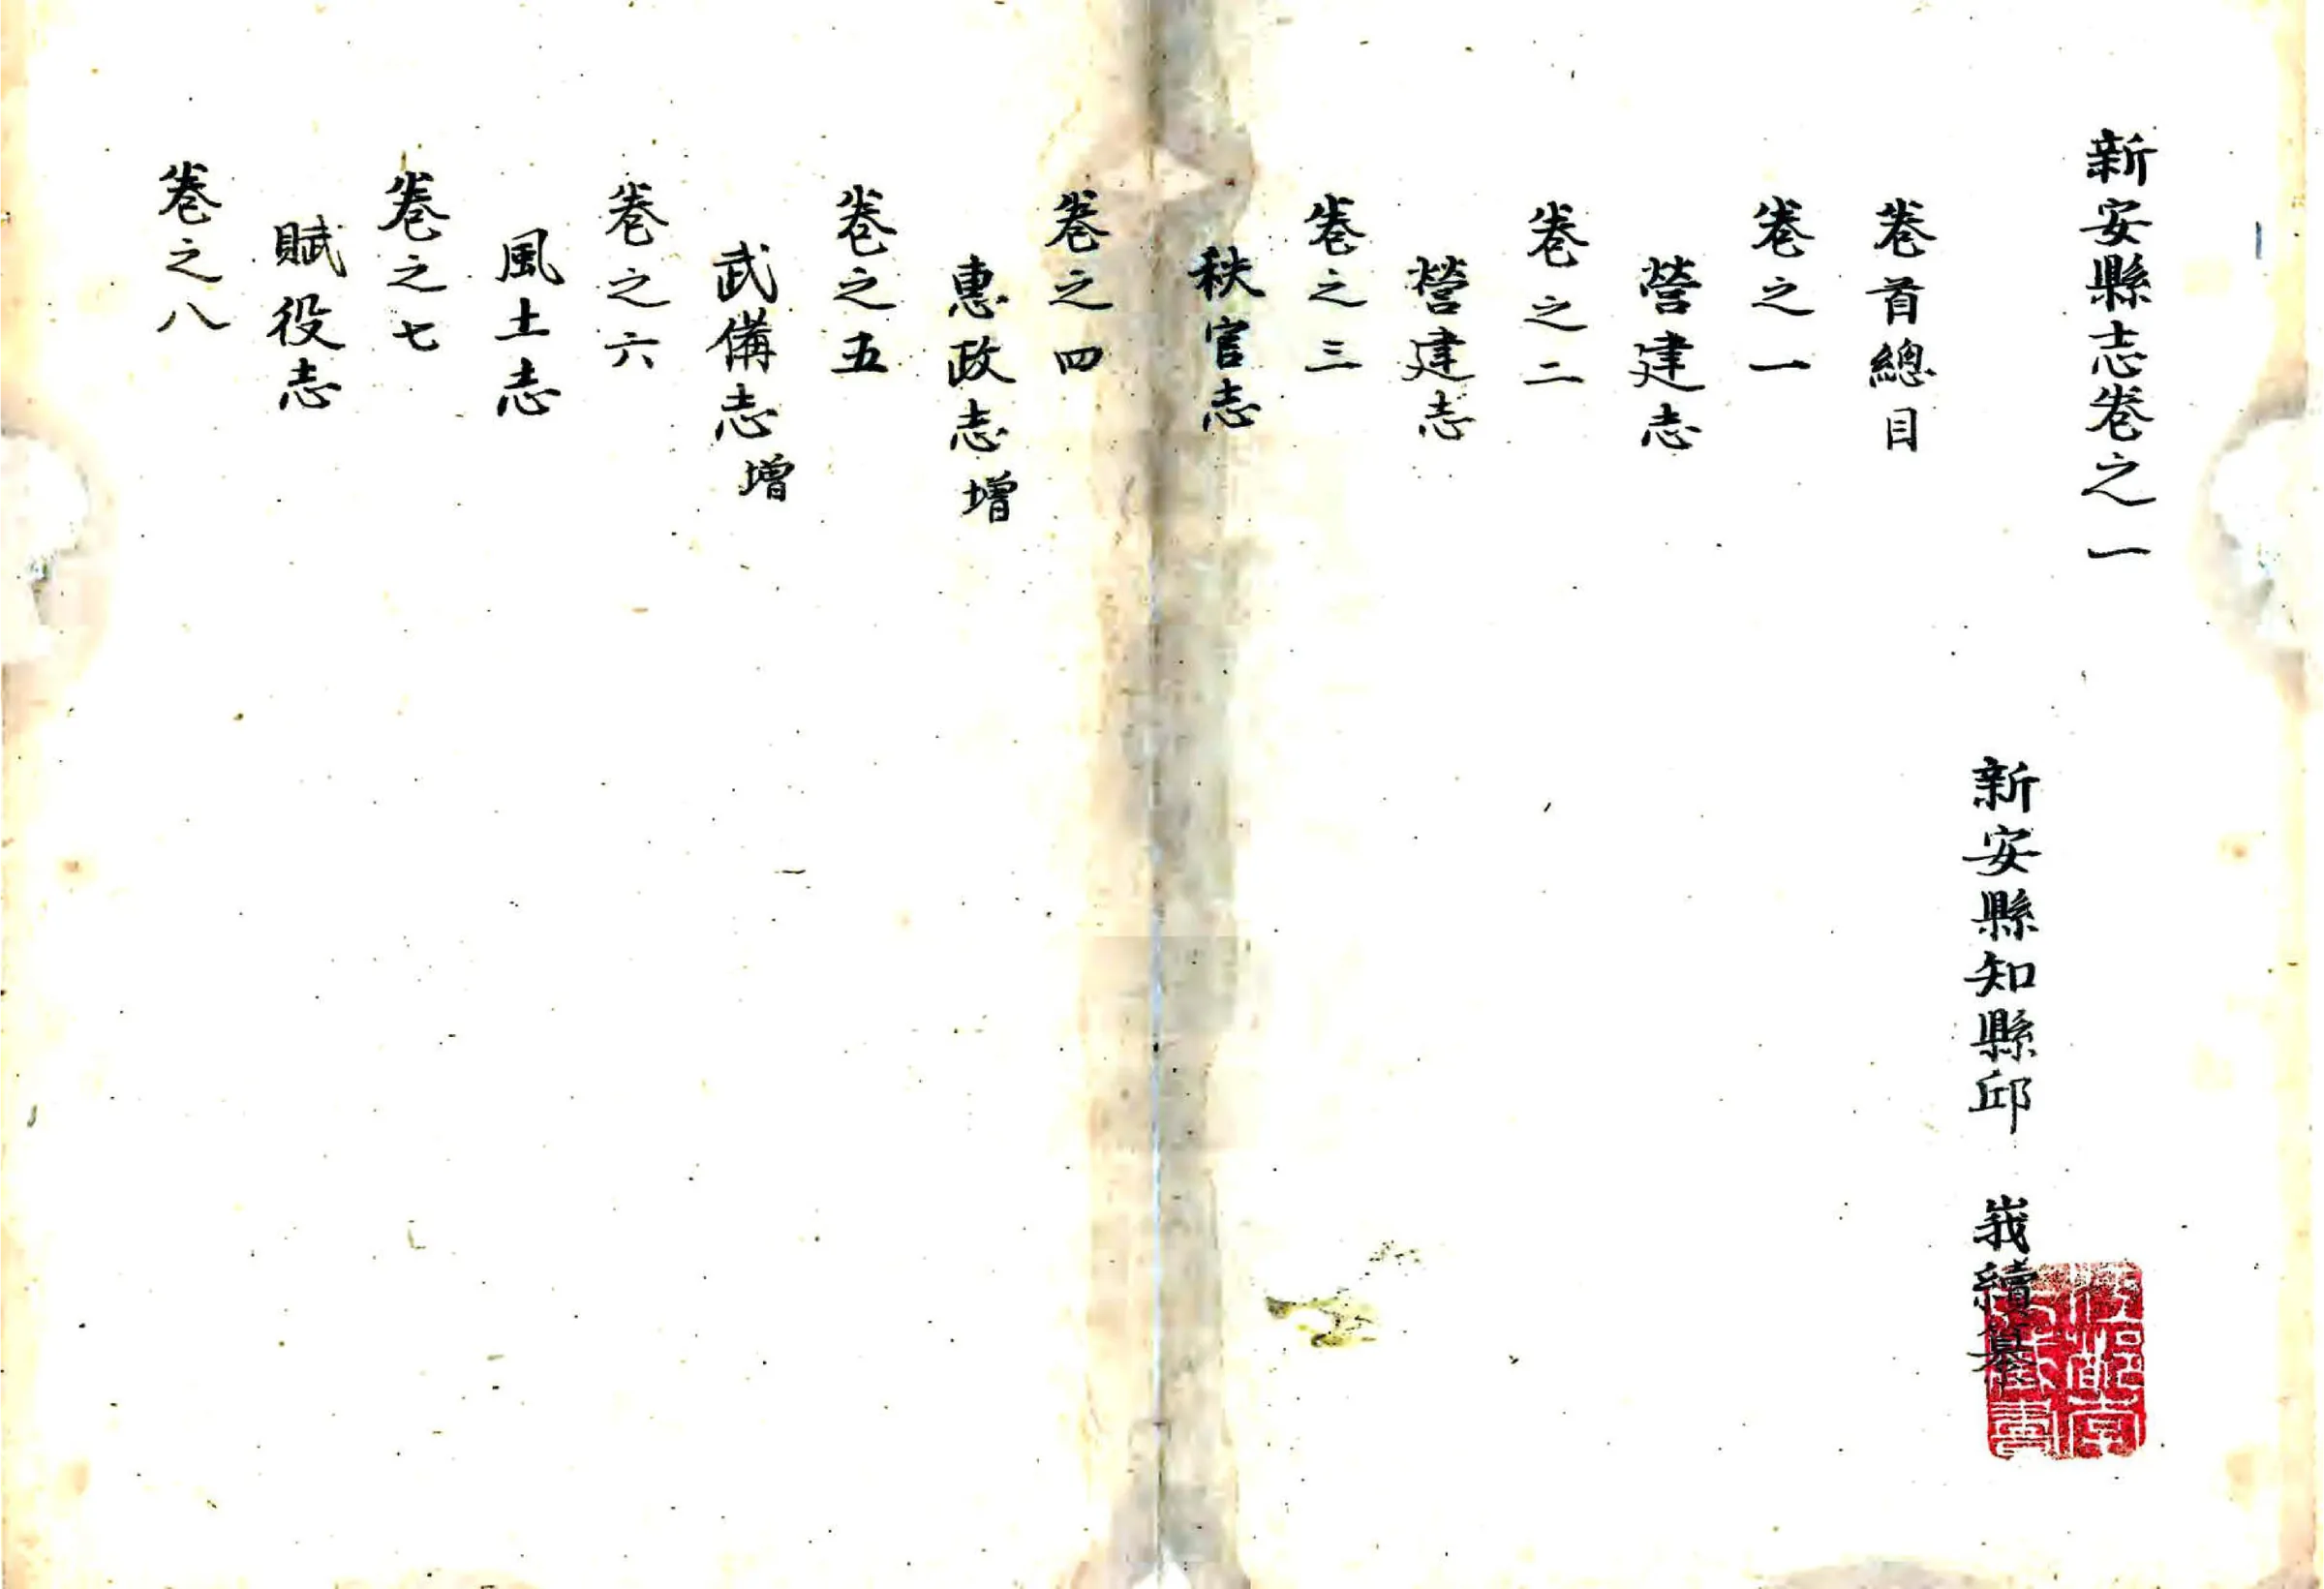 新安縣志卷之一
新安縣知縣邱 峩續纂
卷首總目
卷之一
營建志
卷之二
營建志
卷之三
秩官志
卷之四
惠政志增
卷之五
武備志增
卷之六
風土志
卷之七
賦役志
卷之八